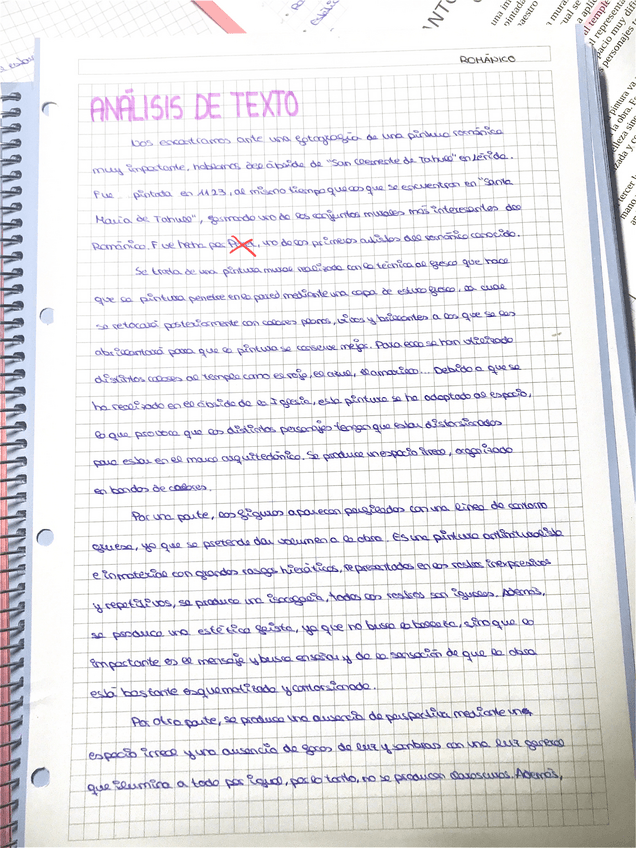 ROMÁNICO
ANÁLISIS DE TEXTO
Nos encontramos ante una fotografía de una pintura románica
muy importante, hablamos del ábside de "San Clemente de Tahull" en Lérida.
Fue pintada en 1123, al mismo tiempo que las que se encuentran en "Santa
María de Tahull", formando uno de los conjuntos murales más interesantes del
Románico. Fue hecha por, uno de los primeros artistas del románico conocido.
Se trata de una pintura mural realizada con la técnica al fresco que hace
que la pintura penetre en la pared mediante una capa de estuco fresco, la cual
se retocará posteriormente con colores planos, vivos y brillantes a los que se les
abrillantará para que la pintura se conserve mejor. Para ello se han utilizado
distintos colores al temple como el rojo, el azul, el amarillo... Debido a que se
ha realizado en el ábside de la Iglesia, esta pintura se ha adaptado al espacio,
lo que provoca que los distintos personajes tengan que estar distorsionados
para estar en el marco arquitectónico. Se produce un espacio irreal, organizado
en bandas de colores.
Por una parte, las figuras aparecen perfiladas con una línea de contorno
gruesa, ya que se pretende dar volumen a la obra. Es una pintura antinaturalista
e inmaterial con grandes rasgos hieráticos, representados en los rostros inexpresivos
y repetitivos, se produce una isocefalia, todos los rostros son iguales. Además,
se produce una estética feista, ya que no busca la belleza, sino que lo
importante es el mensaje y busca enseñar y da la sensación de que la obra
está bastante esquematizada y contorsionada.
Por otra parte, se produce una ausencia de perspectiva mediante un
espacio irreal y una ausencia de focos de luz y sombras con una luz general
que ilumina a todo por igual, por lo tanto, no se producen claroscuros. Además,